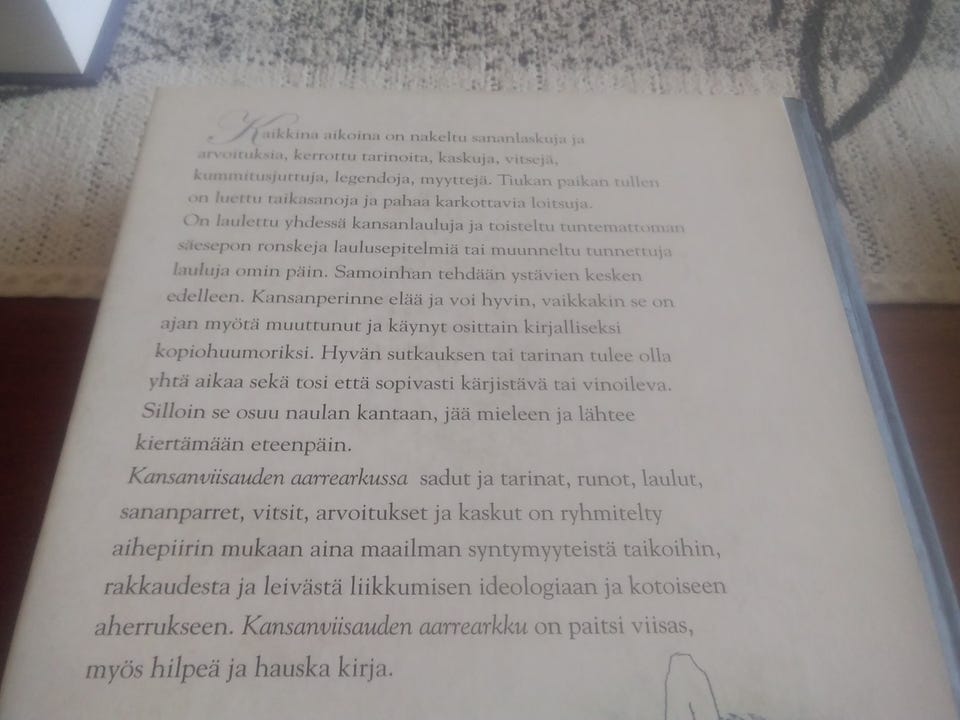 Kaikkina aikoina on nakeltu sananlaskuja ja
arvoituksia, kerrottu tarinoita, kaskuja, vitsejä,
kummitusjuttuja, legendoja, myyttejä. Tiukan paikan tullen
on luettu taikasanoja ja pahaa karkottavia loitsuja.
On laulettu yhdessä kansanlauluja ja toisteltu tuntemattoman
säesepon ronskeja laulusepitelmiä tai muunneltu tunnettuja
lauluja omin päin. Samoinhan tehdään ystävien kesken
edelleen. Kansanperinne elää ja voi hyvin, vaikkakin se on
ajan myötä muuttunut ja käynyt osittain kirjalliseksi
kopiohuumoriksi. Hyvän sutkauksen tai tarinan tulee olla
yhtä aikaa sekä tosi että sopivasti kärjistävä tai vinoileva.
Silloin se osuu naulan kantaan, jää mieleen ja lähtee
kiertämään eteenpäin.
Kansanviisauden aarrearkussa sadut ja tarinat, runot, laulut,
sananparret, vitsit, arvoitukset ja kaskut on ryhmitelty
aihepiirin mukaan aina maailman syntymyyteistä taikoihin,
rakkaudesta ja leivästä liikkumisen ideologiaan ja kotoiseen
aherrukseen. Kansanviisauden aarrearkku on paitsi viisas,
myös hilpeä ja hauska kirja.